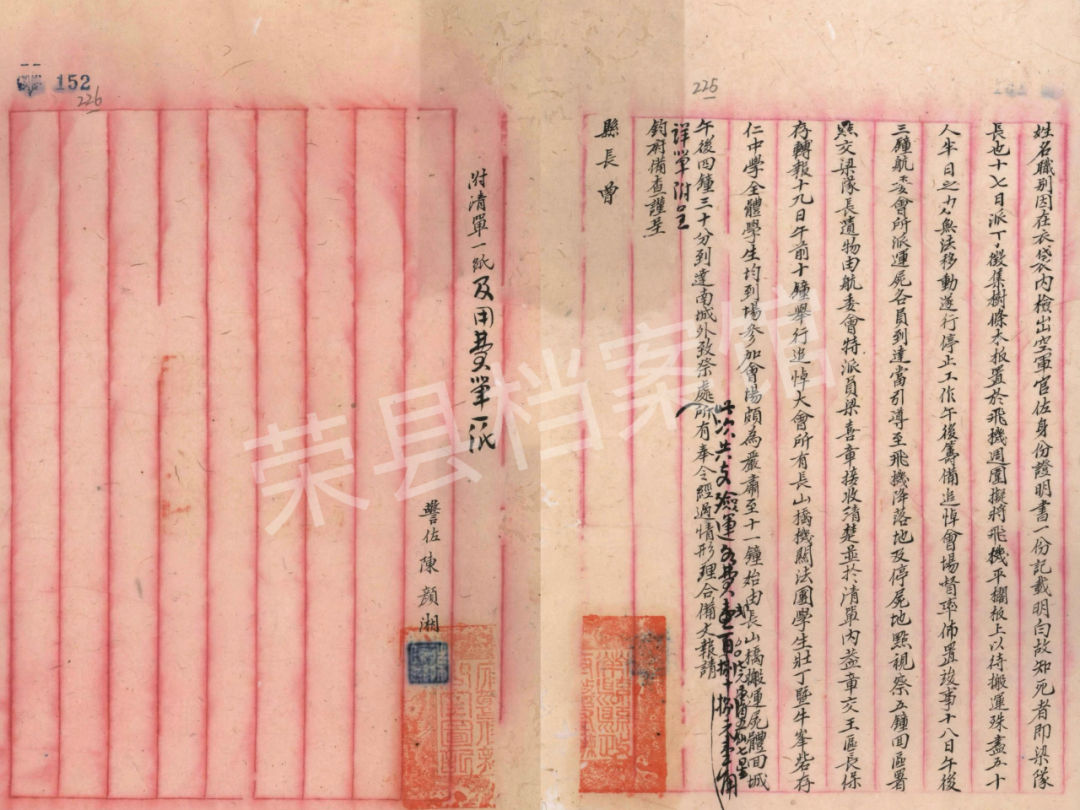 225
姓名職別因在衣袋內檢出空軍官佐身份證明書一份記載明白故知死者即梁隊
長也十七日派丁徵集樹條木板置於飛機週圍擬將飛機平擱板上以待搬運殊盡五十
人半日之力無法移動遂行停止工作午後籌備追悼會場督率佈置竣事十八日午後
三鐘航委會所派運屍各員到達當引導至飛機降落地及停屍地點視察五鐘回區署
點交梁隊長遺物由航委會特派員梁喜章接收清楚並於清單內蓋章交王區長保
存轉報十九日午前十鐘舉行追悼大會所有長山橋機關法團學生壯丁暨牛峯砦存
仁中學全體學生均到場參加會場頗為嚴肅至十一鐘始由長山橋搬運屍體回城
午後四鐘三十分到達南城外致祭處所有奉令經過情形理合備文報請
此次共支殮運各費壹百
詳單附呈
鈞府備查謹呈
縣長曾
152
226
附清單一紙及用費單一紙
警佐陳顔湘
荣县档案馆